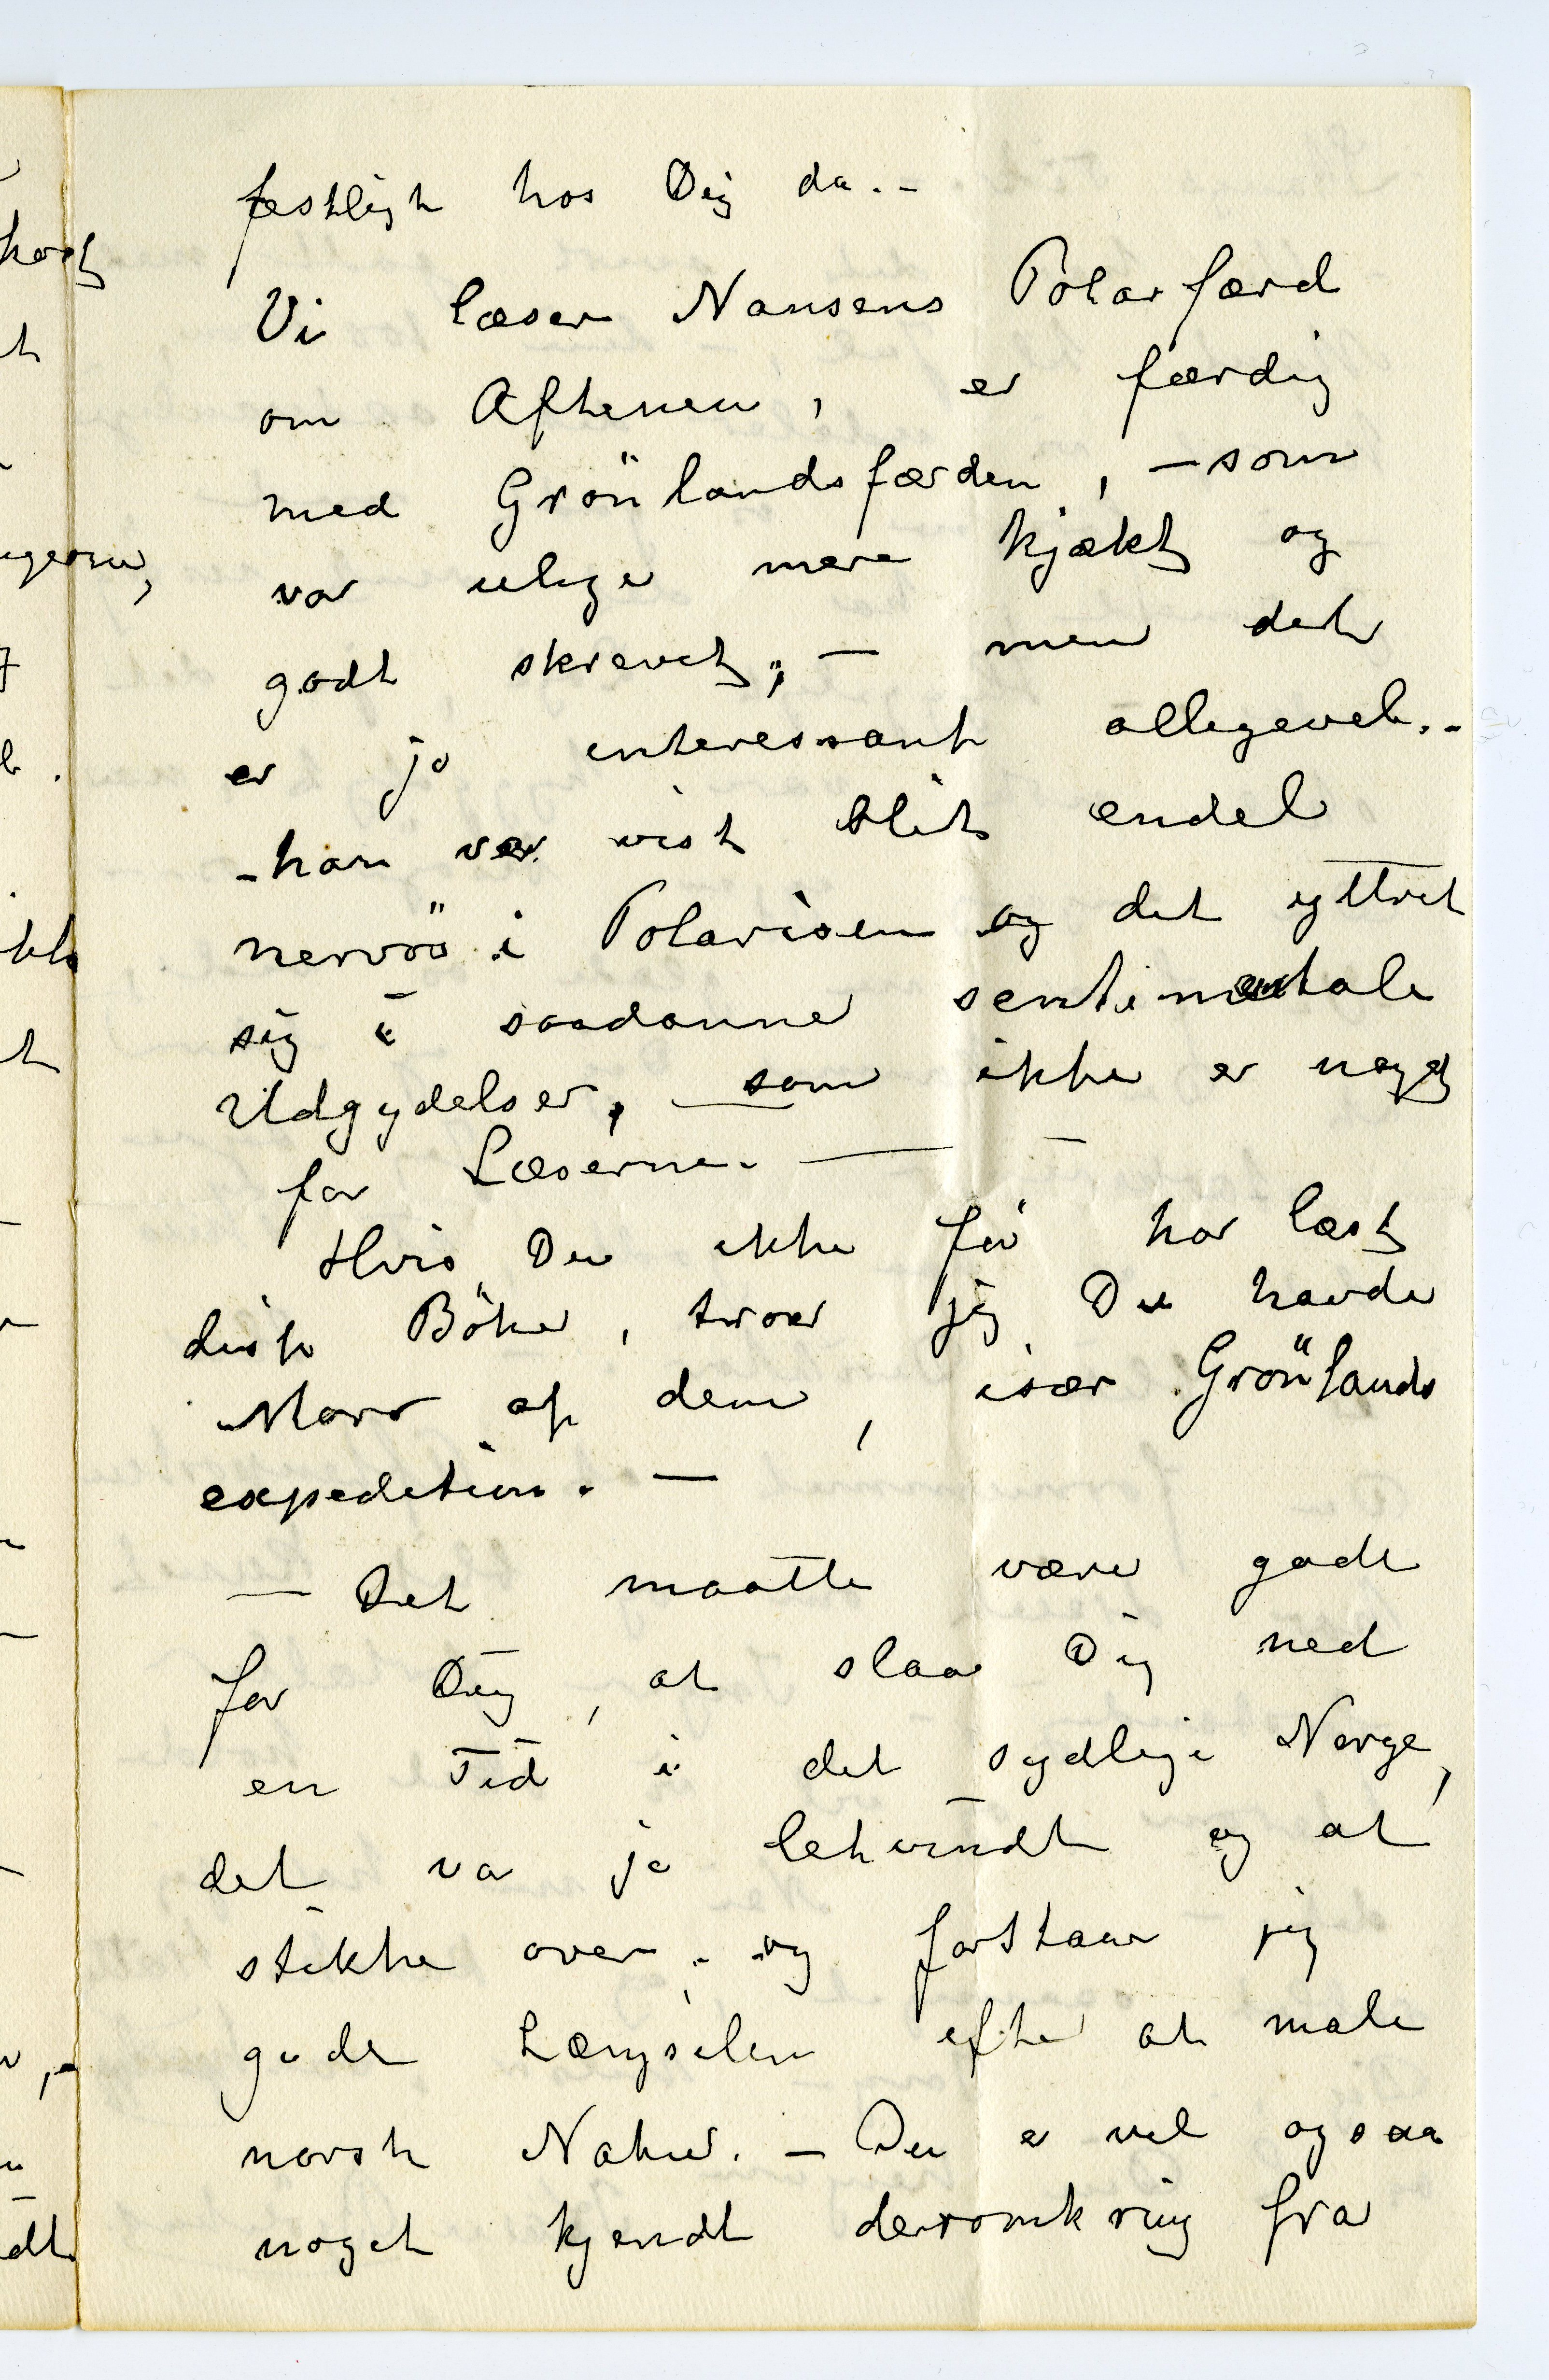 festligt hos Dig da.-
Vi læser Nansens Polarfærd
om Aftenen, er færdig
med Grönlandsfærden, — som
var ulige mere kjækt og
godt skrevet; — men det
er jo interessant alligevel.-
- han var vist blit endel
nervös i Polarisen og det yttret
sig i saadanne sentimentale
Udgydelser, — som ikke er noget
for Læserne. — —
Hvis Du ikke før har læst
disse Böker, tror jeg Du havde
Moro af dem, især Grönlands
expeditionen. —
— Det maatte være godt
for Dig, at slaa Dig ned
en Tid i det sydlige Norge,
det var jo letvindt og at
stikke over. og forstaar jeg
godt Længselen efter at male
norsk Natur. — Du er vel ogsaa
noget kjendt deromkring fra